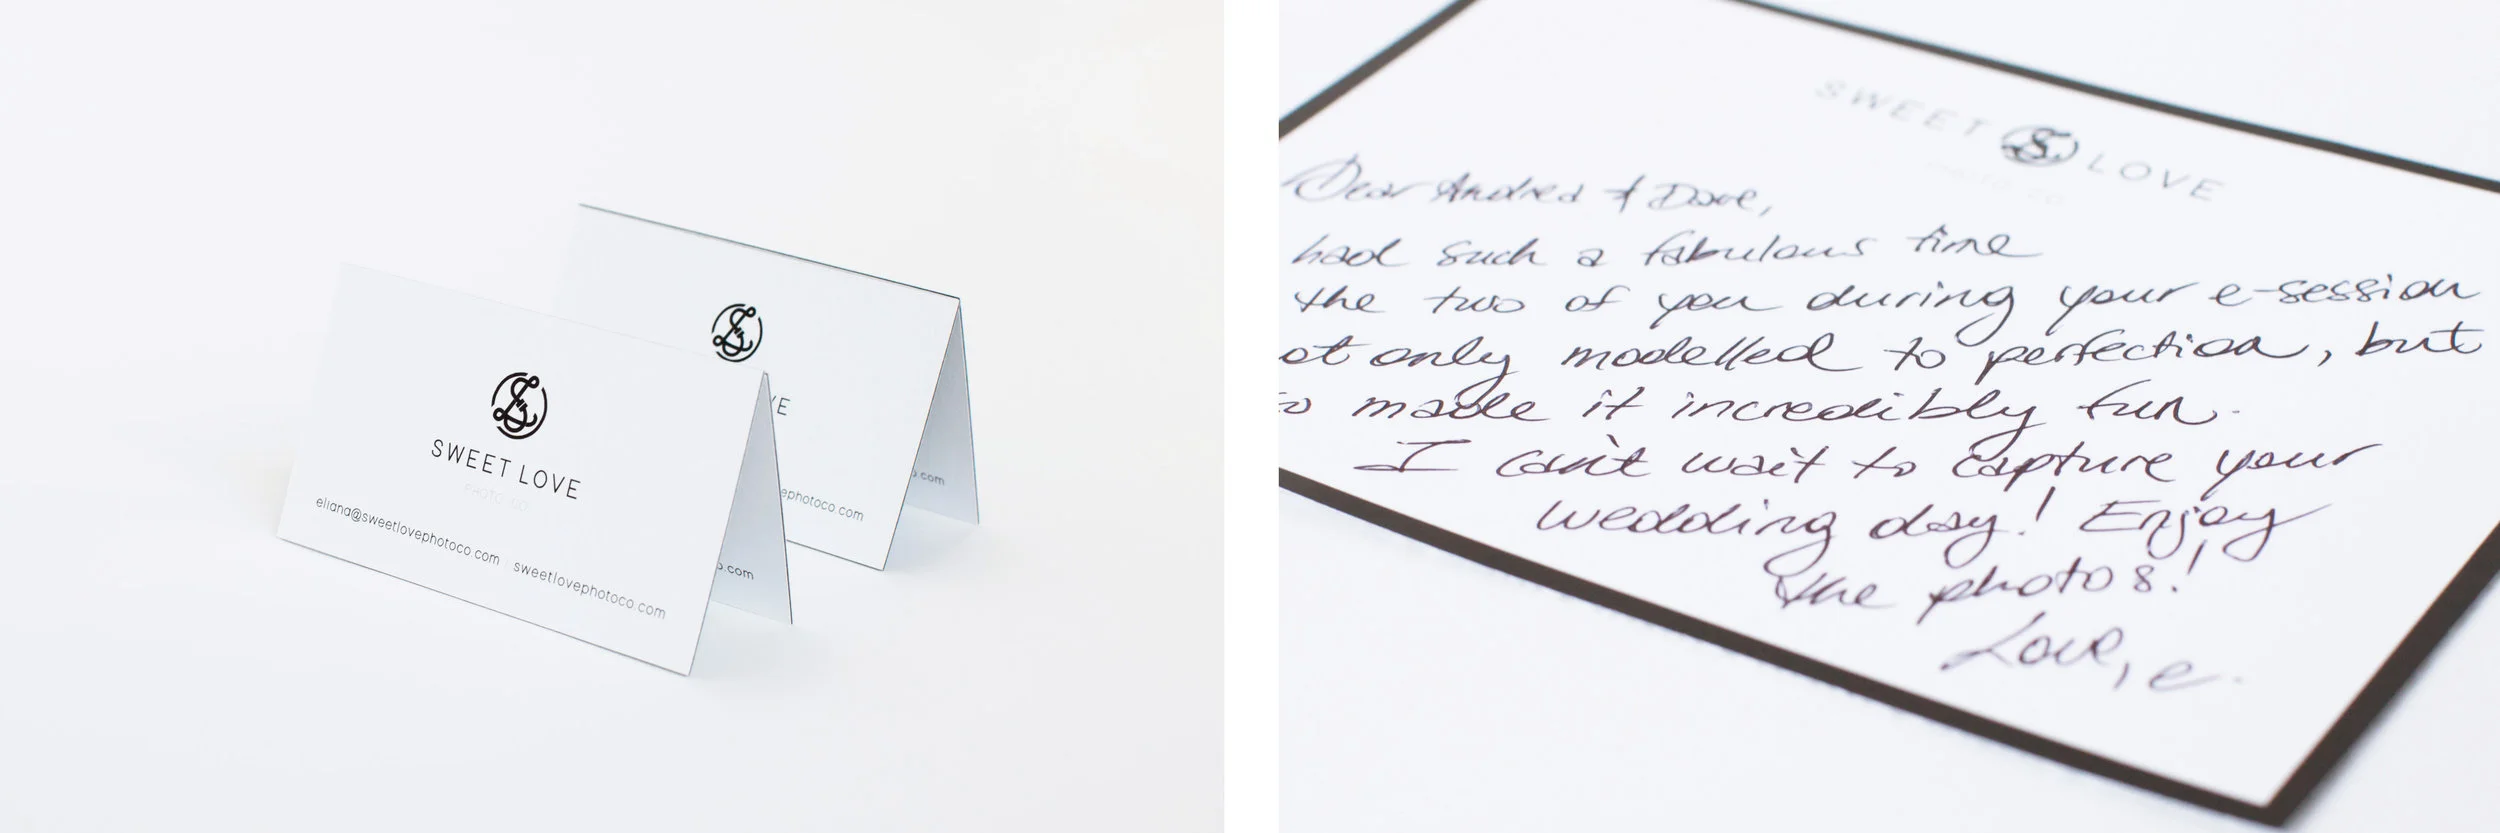 SWEET LOVE
PHOTO CO.
eliana@sweetlovephotoco.com sweetlovephotoco.com
o.com
VE
ephotoco.com
.com
SWEET LOVE
Dear Andrea & Dave,
had such a fabulous time
the two of you during your e-session
ot only modelled to perfection, but
o made it incredibly fun.
I can't wait to capture your
wedding day! Enjoy
the photos!
Love, e.